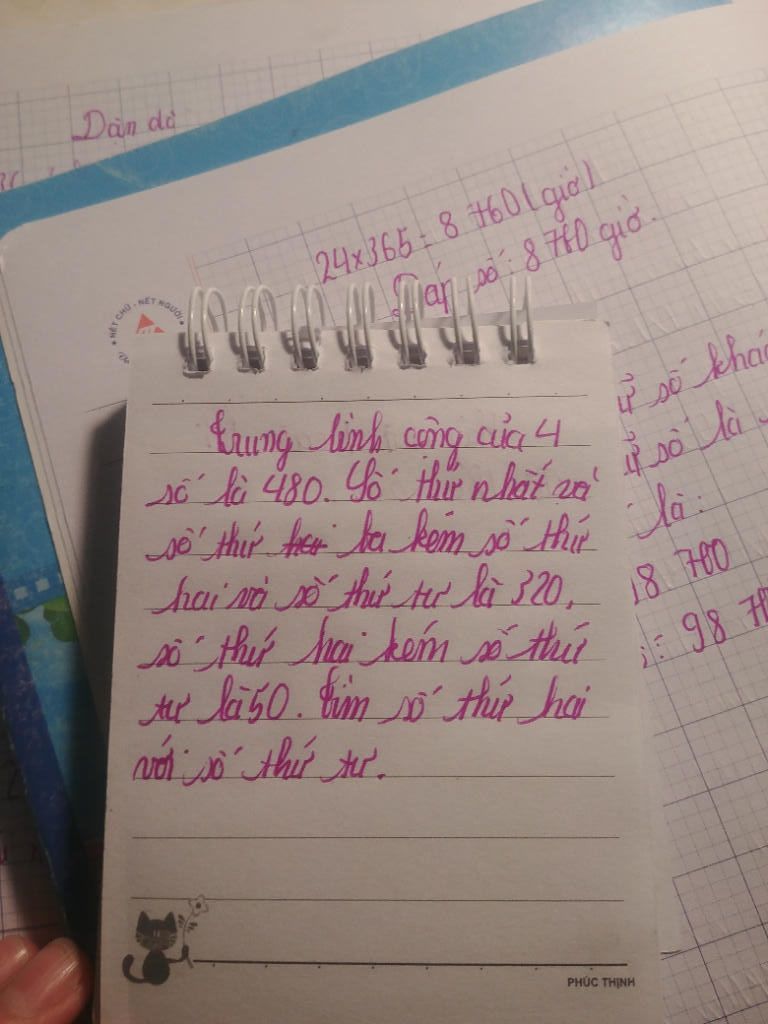 Dặn dò
24x365 = 8 760 (giờ)
Đáp số: 8 760 giờ.
NÉT CHỮ - NẾT NGƯỜI
số khác
số là
là:
18 760
98 76
Trung bình cộng của 4
số là 480. Số thứ nhất và
số thứ hai ba kém số thứ
hai và số thứ tư là 320,
số thứ hai kém số thứ
tư là 50. Tìm số thứ hai
với số thứ tư.
PHÚC THỊNH